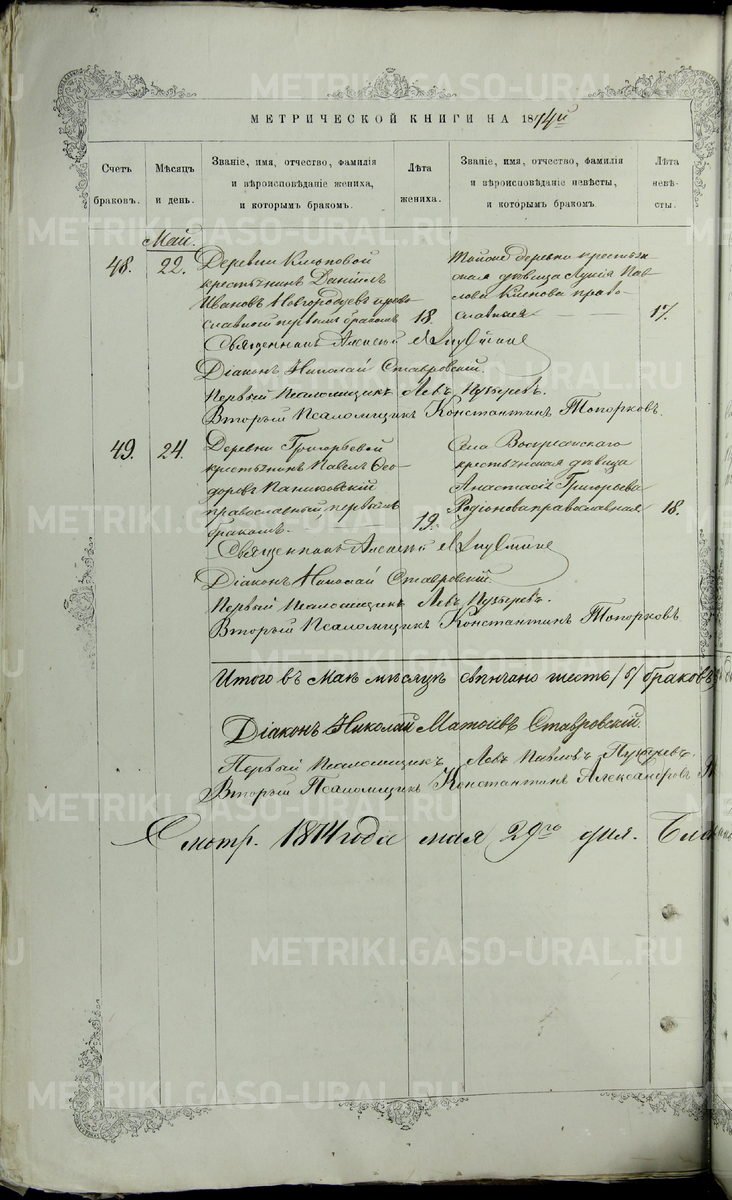 METRIKI.GASO-URAL.RU
МЕТРИЧЕСКОЙ КНИГИ НА 1874й
Счетъ браковъ.
Мѣсяцъ и день.
Званіе, имя, отчество, фамилія и вѣроисповѣданіе жениха, и которымъ бракомъ.
Лѣта жениха.
Званіе, имя, отчество, фамилія и вѣроисповѣданіе невѣсты, и которымъ бракомъ.
Лѣта невѣсты.
Май.
48. 22. Деревни
крестьянинъ Даніилъ
Ивановъ Новгородцевъ право-
славный первымъ бракомъ 18.
Тойже деревни крестьян-
ская дѣвица Лукія Пав-
лова право-
славная 17.
Священникъ Алексій
Діаконъ Николай Ставровскій.
Первый Псаломщикъ Левъ Пузыревъ.
Вторый Псаломщикъ Константинъ Топорковъ.
49. 24. Деревни Григорьевой
крестьянинъ Павелъ Ѳео-
доровъ Паниковскій
православный первымъ
бракомъ. 19.
Села Воскресенскаго
крестьянская дѣвица
Анастасія Григорьева
Родіонова православная 18.
Священникъ Алексій
Діаконъ Николай Ставровскій.
Первый Псаломщикъ Левъ Пузыревъ.
Вторый Псаломщикъ Константинъ Топорковъ.
Итого въ Маѣ мѣсяцѣ вѣнчано шесть /6/ браковъ
Діаконъ Николай Матѳіевъ Ставровскій.
Первый Псаломщикъ Левъ Павловъ Пузыревъ.
Вторый Псаломщикъ Константинъ Александровъ
Смотр. 1874 года мая 29го дня.